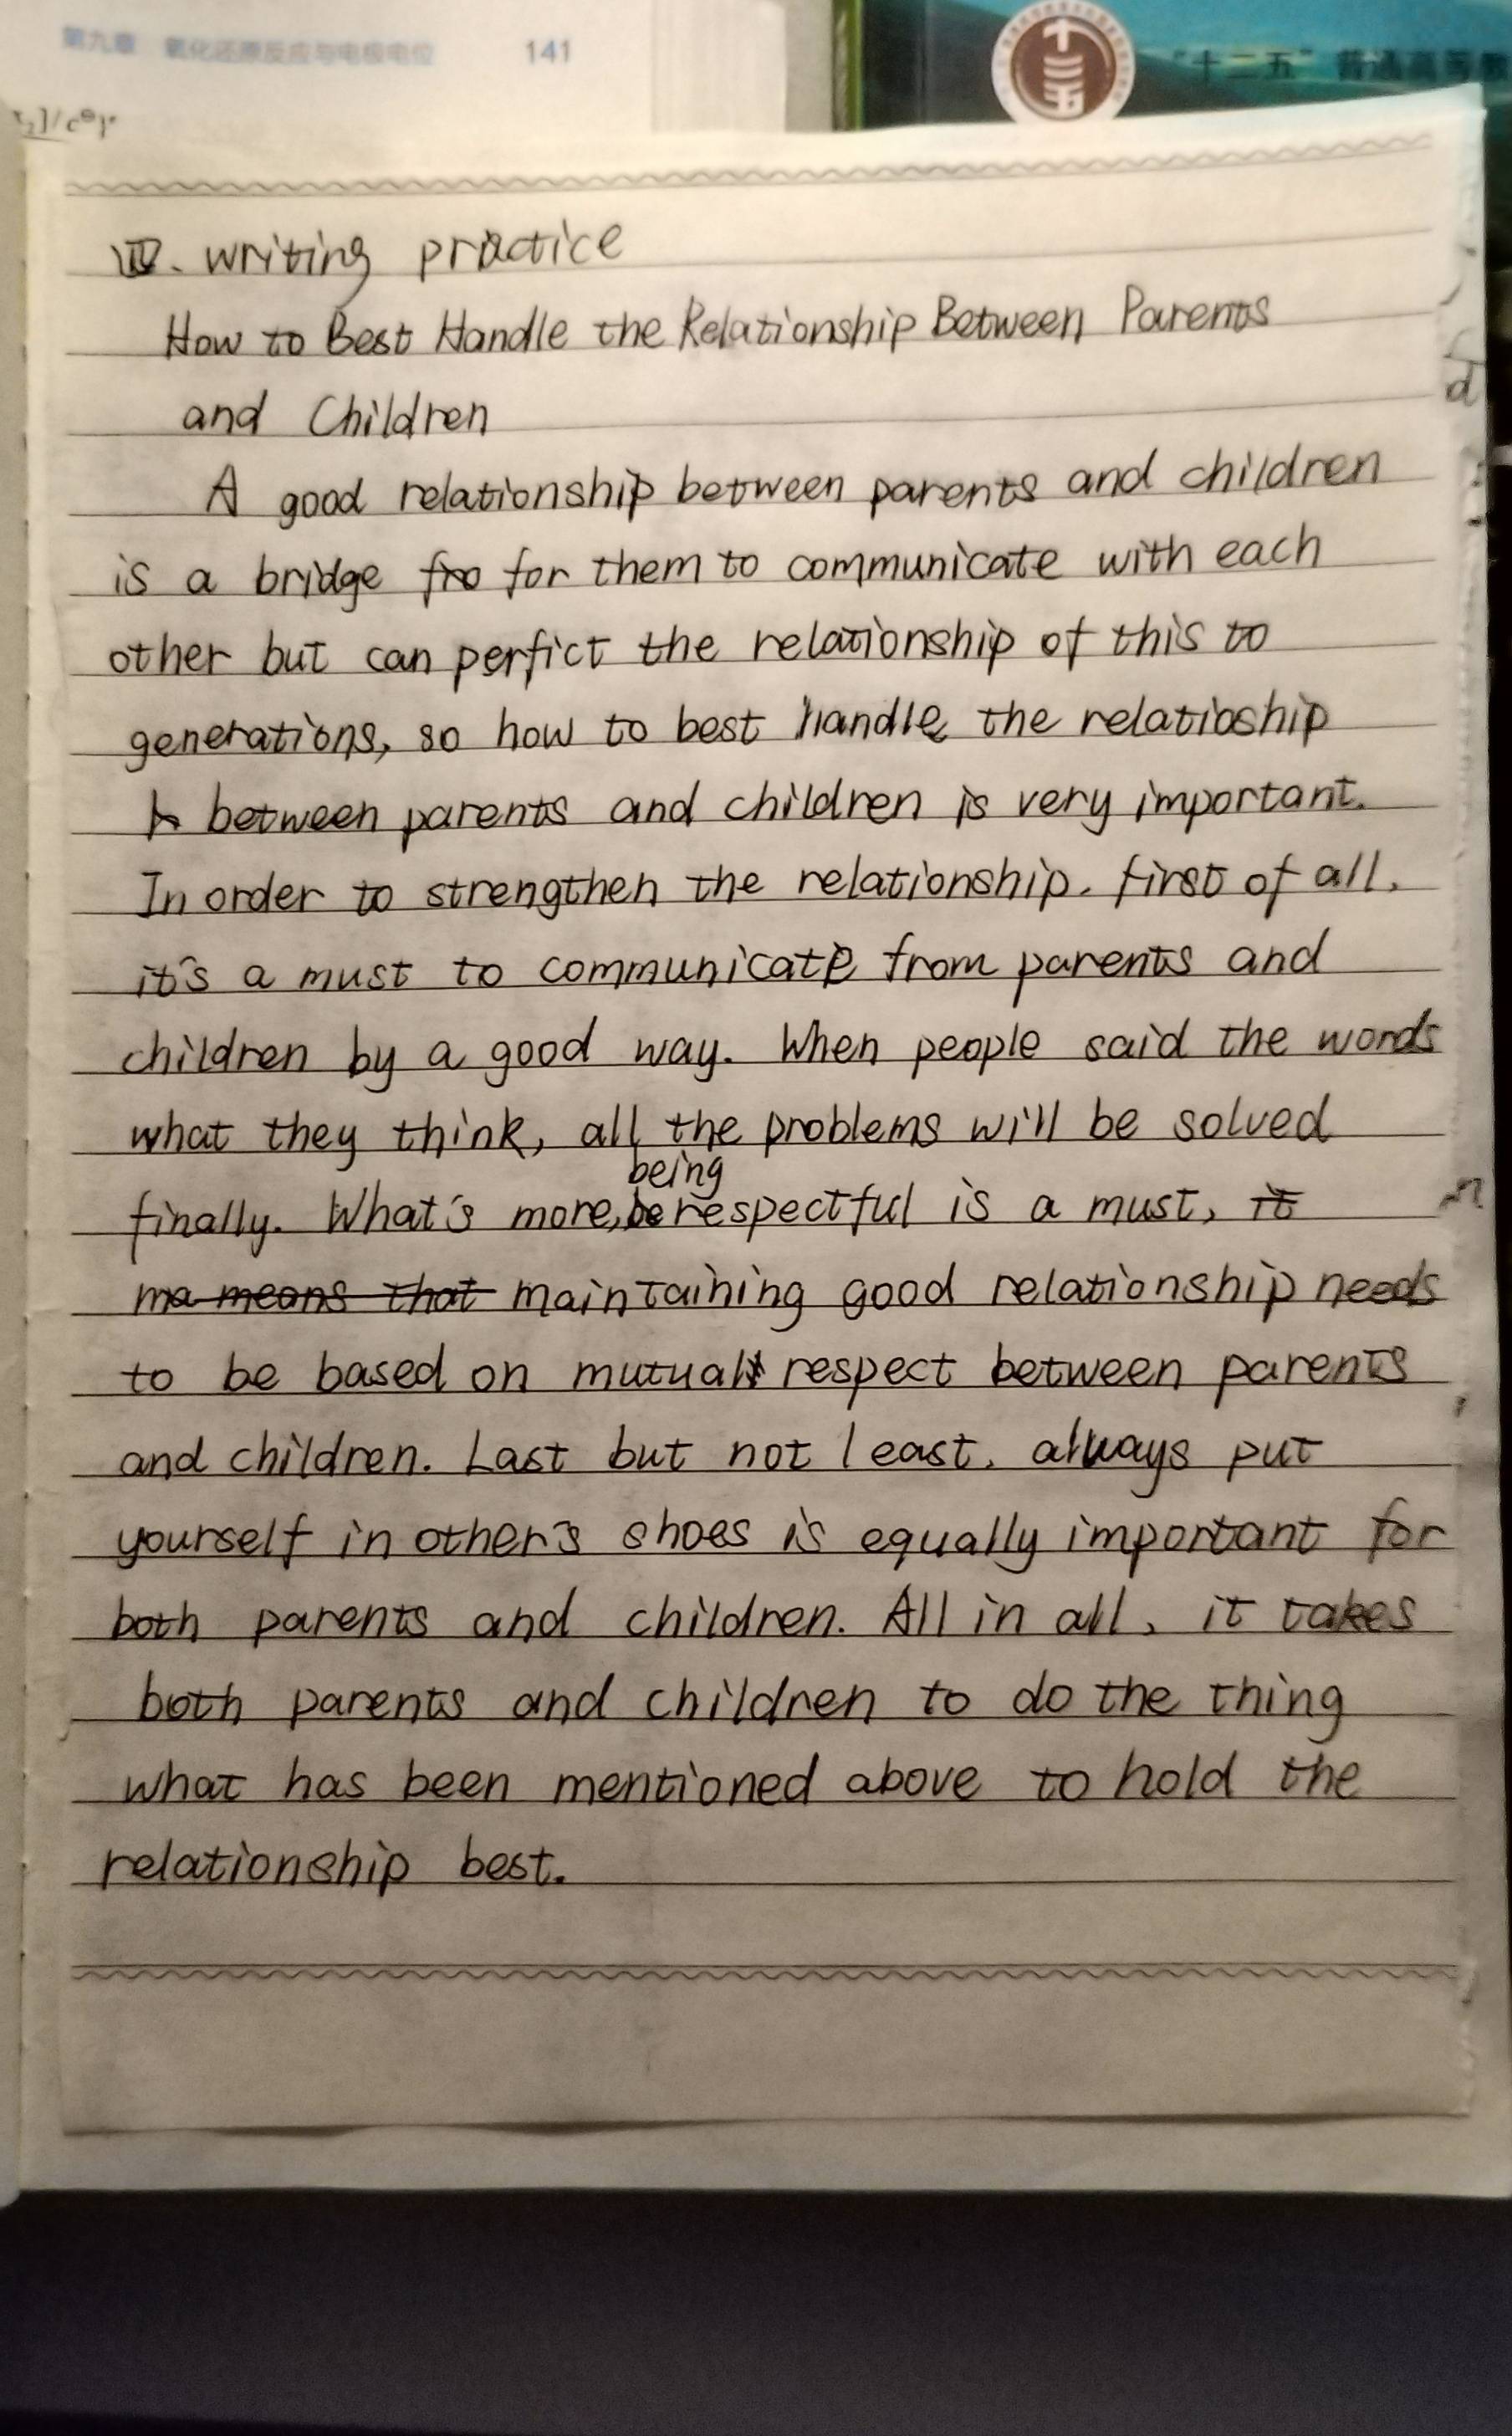 第九章 氧化还原反应与电极电位 141
"十二五" 普通高等教
十二五
IV. writing practice
How to Best Handle the Relationship Between Parents
and Children
A good relationship between parents and children
is a bridge fro for them to communicate with each
other but can perfict the relationship of this to
generations, so how to best handle the relatioship
between parents and children is very important.
In order to strengthen the relationship. first of all,
it's a must to communicate from parents and
children by a good way. When people said the words
what they think, all the problems will be solved
being
finally. What's more, be respectful is a must, it
ma means that maintaining good relationship needs
to be based on mutual respect between parents
and children. Last but not least, always put
yourself in other's shoes is equally important for
both parents and children. All in all, it takes
both parents and children to do the thing
what has been mentioned above to hold the
relationship best.